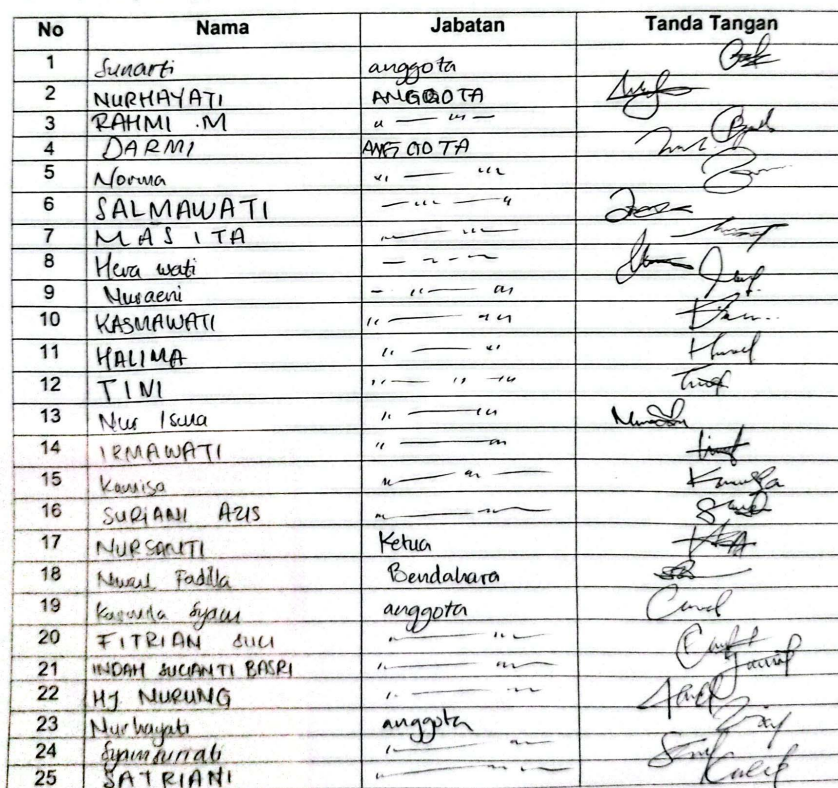 No Nama Jabatan Tanda Tangan
1 Sunarti anggota
2 NURHAYATI ANGGOTA
3 RAHMI .M " — " —
4 DARMI ANGGOTA
5 Norma " — "
6 SALMAWATI — " — "
7 MASITA " — "
8 Hera wati — " —
9 Nuraeni - " — "
10 KASMAWATI " — "
11 HALIMA " — "
12 TINI " — " — "
13 Nur Isma " — "
14 IRMAWATI " — "
15 Kamisa " — " —
16 SURIANI AZIS " — " —
17 NURSANTI Ketua
18 Nurul Fadilla Bendahara
19 Syam anggota
20 FITRIAN SUCI " — " —
21 INDAH SUCIANTI BASRI " — " —
22 HJ NURUNG " — " —
23 Nurhayati anggota
24 " — " —
25 SATRIANI " — " —